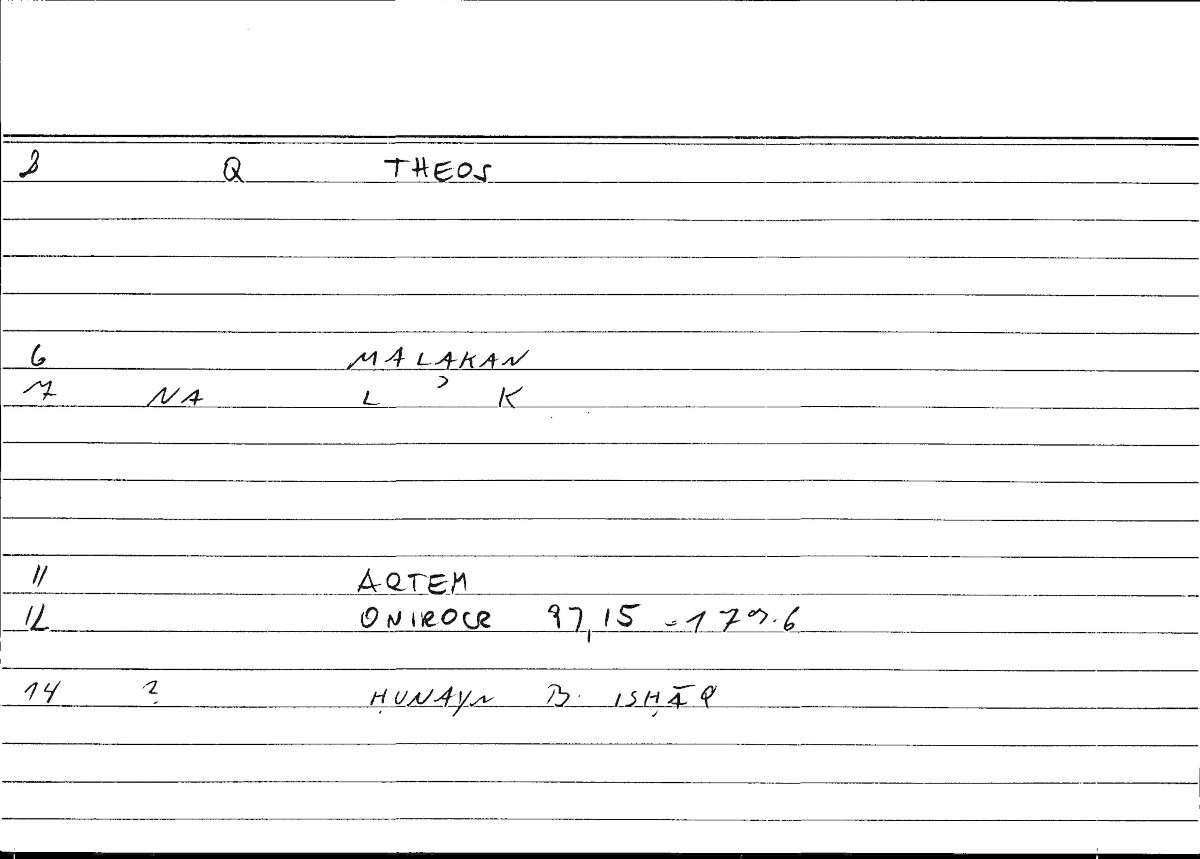 Q THEOS
6 MALAKAN
7 NA L ʾ K
11 ARTEM
12 ONIROCR 97,15 - 179.6
14 ? ḤUNAYN B. ISḤĀQ